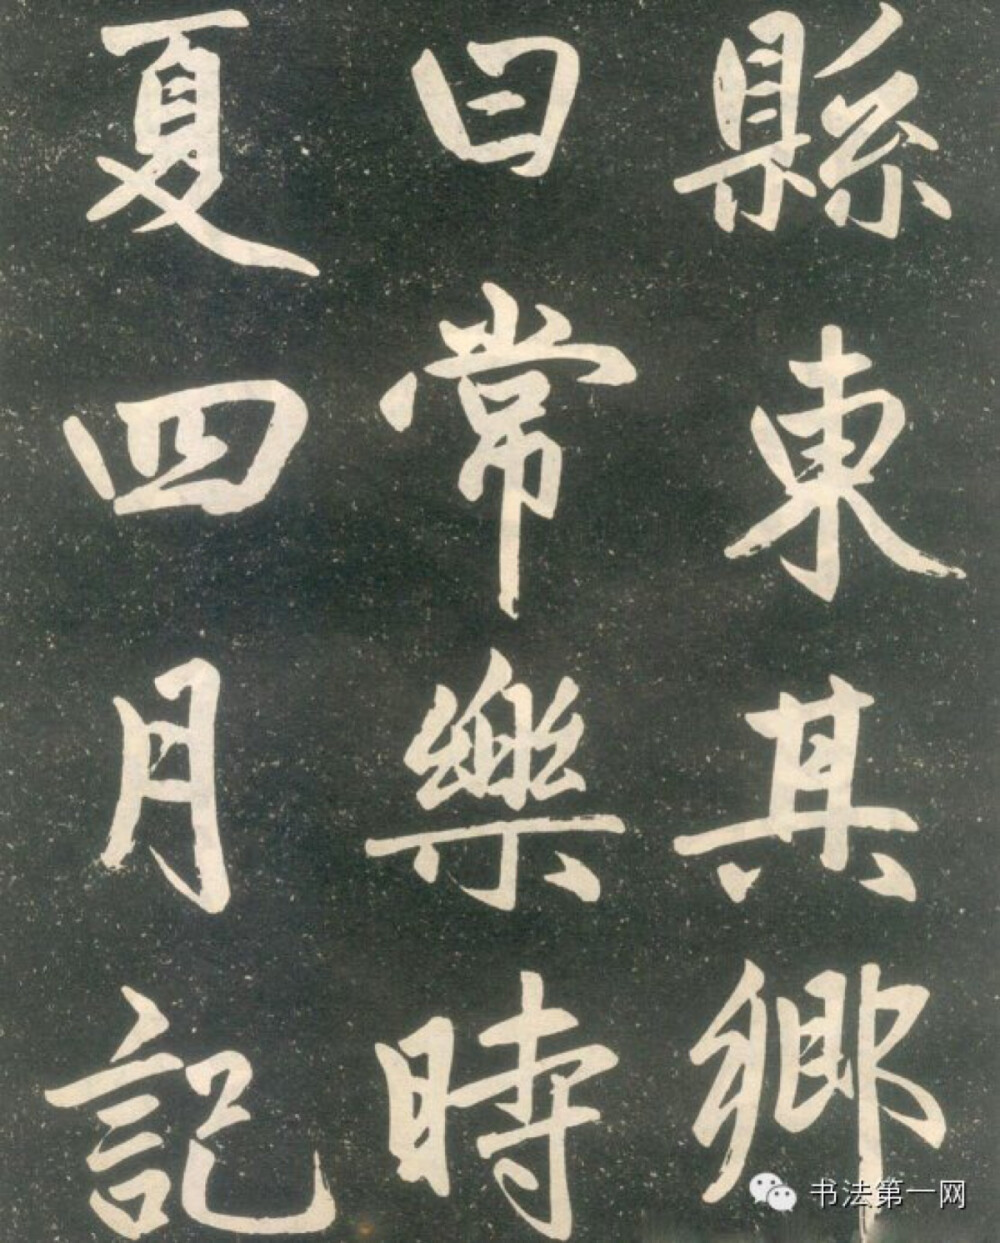 縣東其鄉
曰常樂時
夏四月記
书法第一网